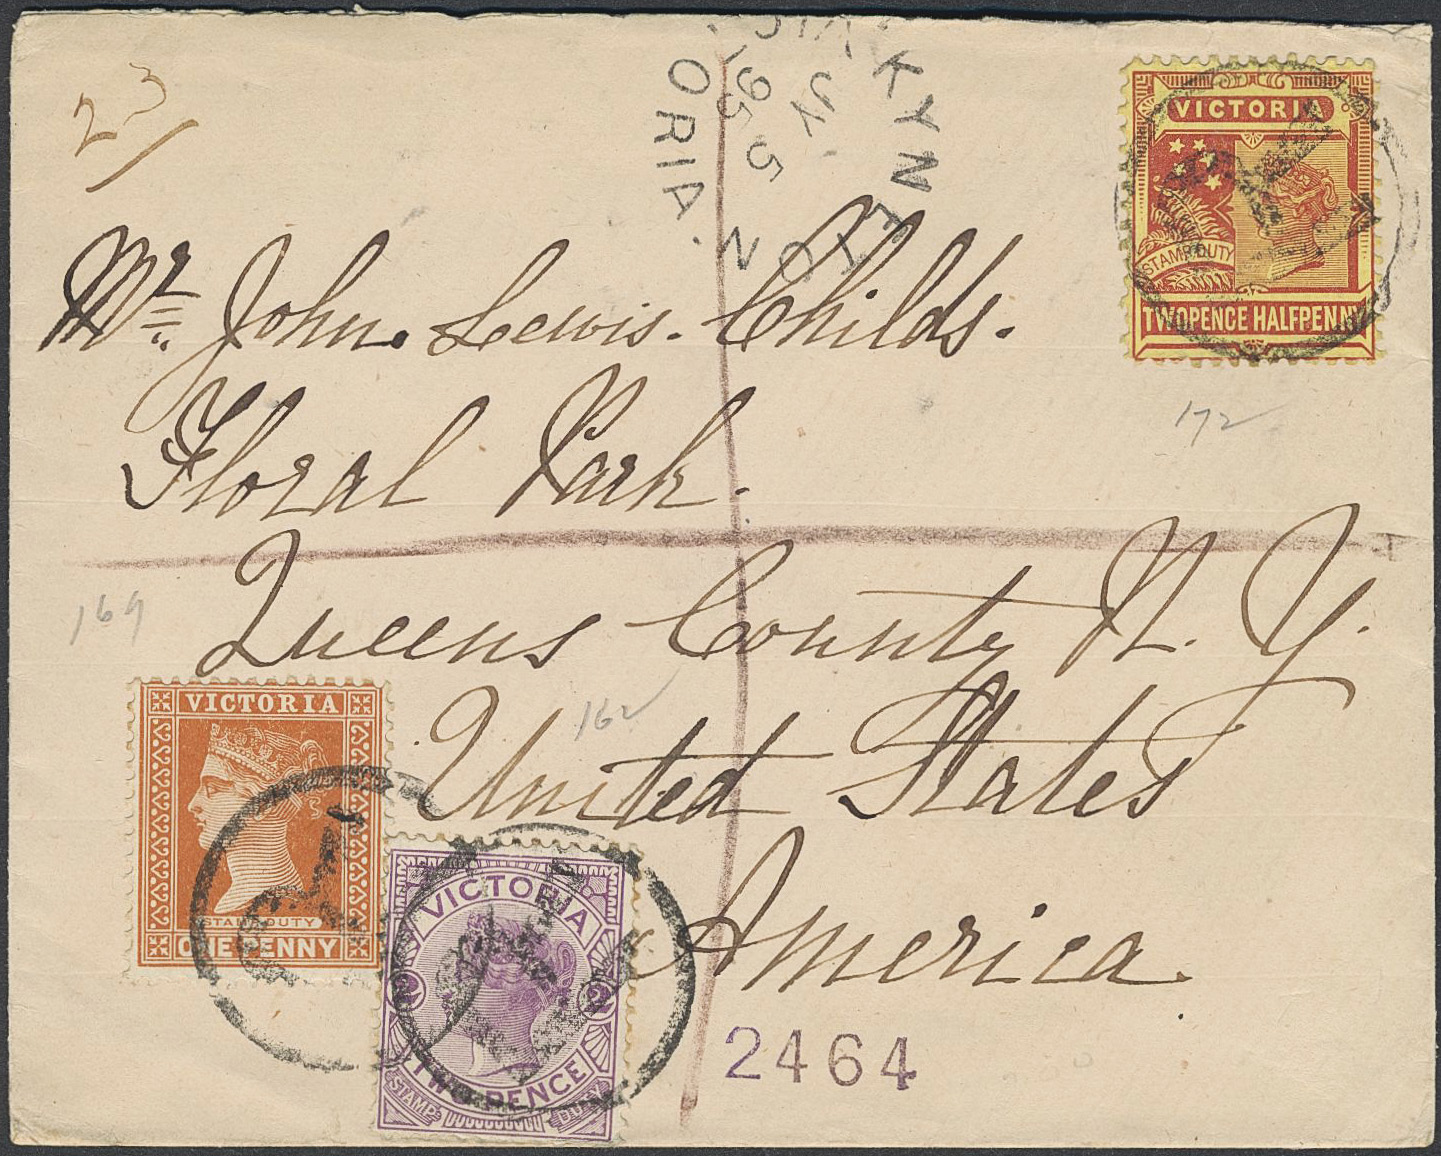 23/
KYNETON
VICTORIA
JY 5
95
VICTORIA
STAMP DUTY
TWOPENCE HALFPENNY
Mr. John. Lewis. Childs.
172
Floral Park.
Queens County N. Y.
169
United States
162
America.
VICTORIA
STAMP DUTY
ONE PENNY
VICTORIA
2 2
TWO PENCE
STAMP DUTY
R
2464